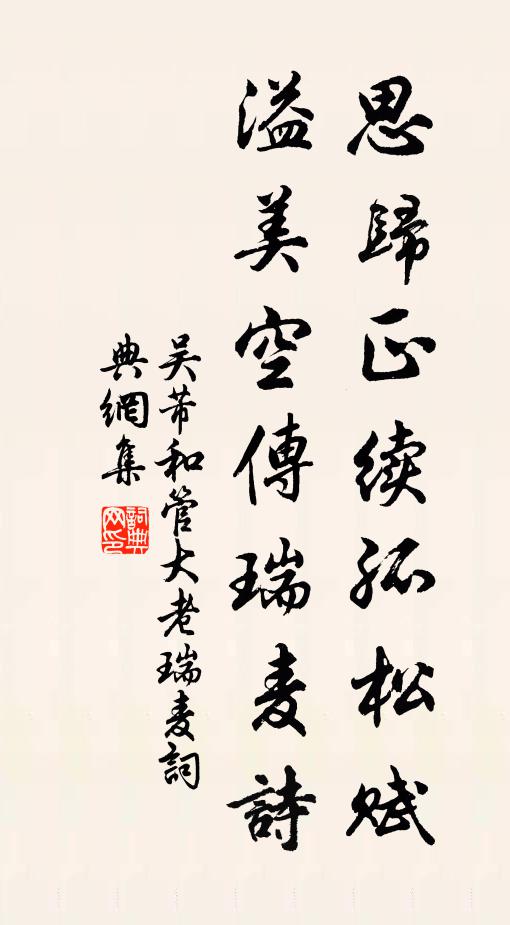 思歸正续孤松赋
溢美空傳瑞麦詩
吴芾和管大老瑞麦詞
典網集
詞典網印